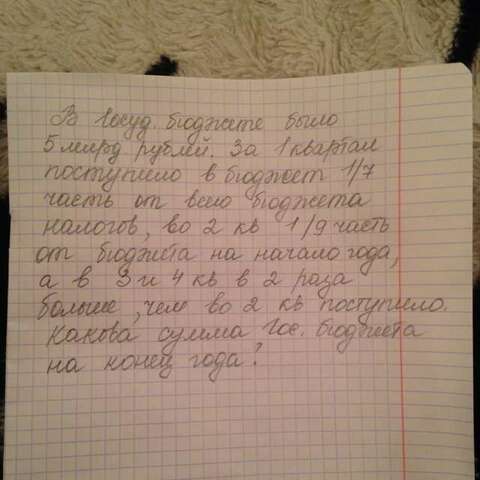 В Госуд. бюджете было
5 млрд рублей. За 1 квартал
поступило в бюджет 1/7
часть от всего бюджета
налогов, во 2 кв 1/9 часть
от бюджета на начало года,
а в 3 и 4 кв в 2 раза
больше, чем во 2 кв поступило.
Какова сумма Гос. бюджета
на конец года?